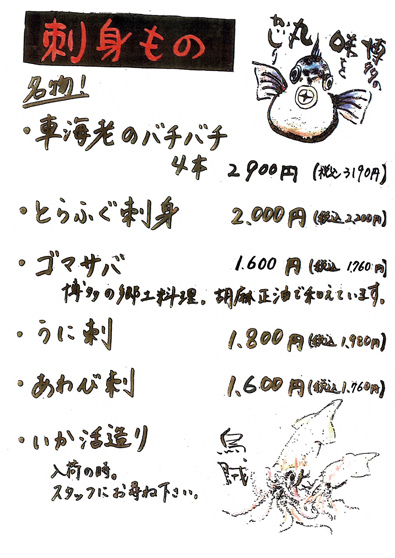 刺身もの
博多の
味を
丸
かじり
名物!
・車海老のバチバチ
4本 2900円(税込3190円)
・とらふぐ刺身 2.000円(税込2,200円)
・ゴマサバ 1.600円(税込 1,760円)
博多の郷土料理。胡麻正油で和えています。
・うに刺 1.800円(税込1,980円)
・あわび刺 1.600円(税込1,760円)
・いか活造り
入荷の時。
スタッフにお尋ね下さい。
烏賊